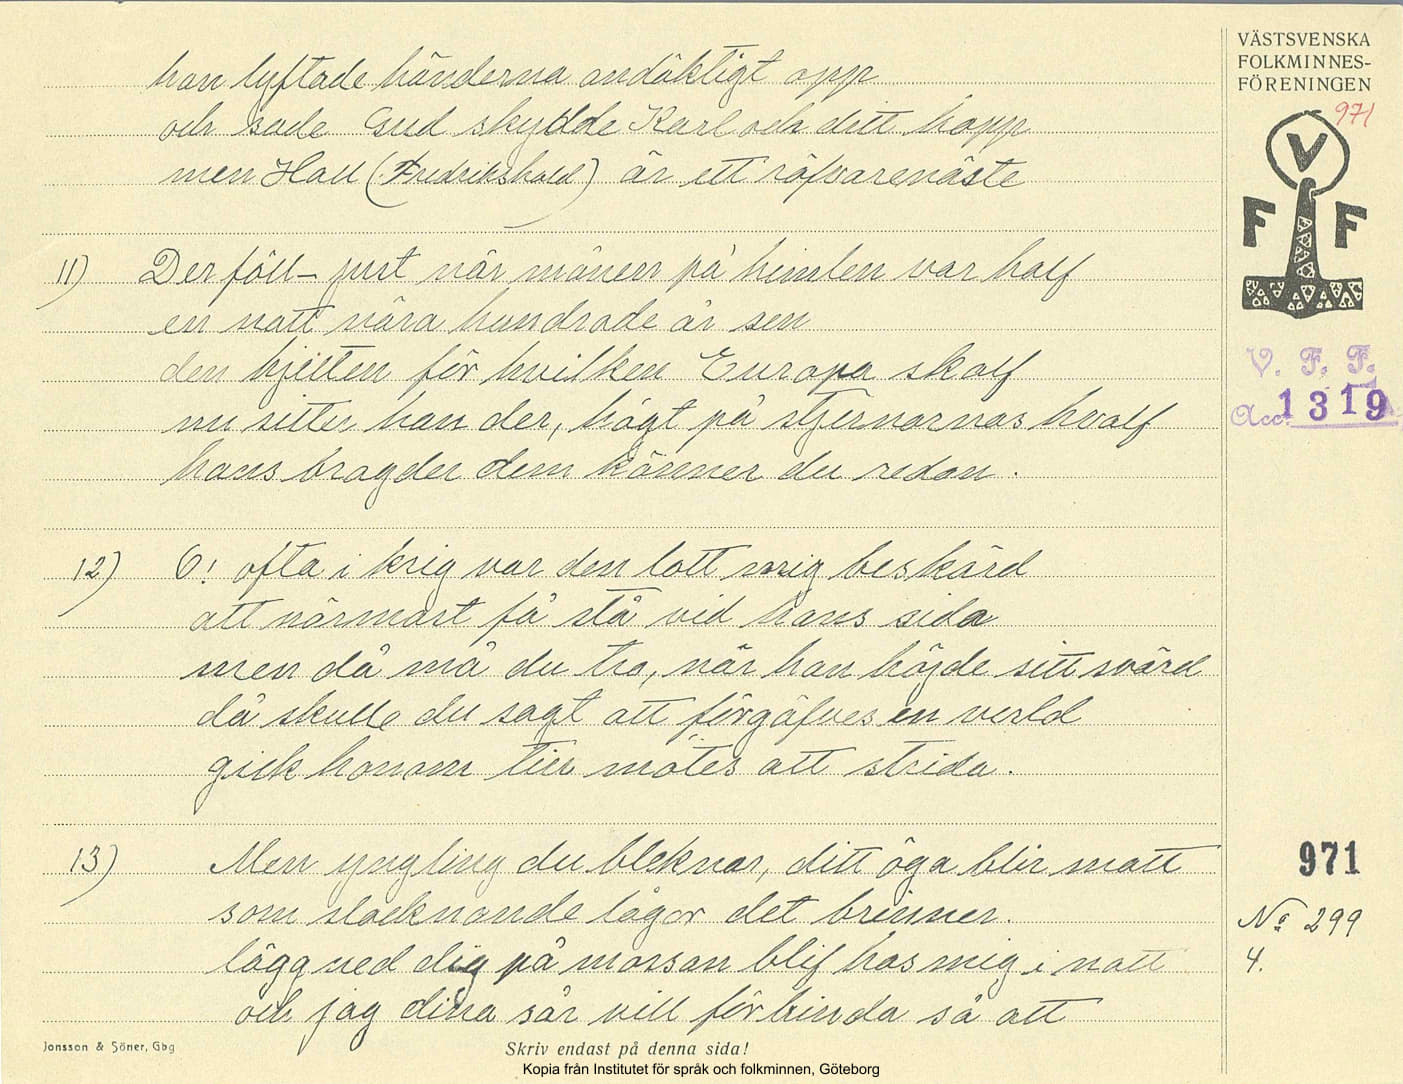 han lyftade händerna andäktigt opp
och sade Gud skydde Karl och ditt hopp
men Hall (Fredrikshald) är ett röfvarenäste
11) Der föll – just när månen på himlen var half
en natt nära hundrade år sen
den hjelten för hvilken Europa skalf
nu sitter han der, högt på stjernornas hvalf
hans bragder dem känner du redan.
12) O! ofta i krig var den lott mig beskärd
att närmast få stå vid hans sida
men då må du tro, när han höjde sitt svärd
då skulle du sagt att förgäfves en verld
gick honom till mötes att strida.
13) Men yngling du bleknar, ditt öga blir matt
som slocknande lågor det brinner.
lägg ned dig på mossan blif hos mig i natt
och jag dina sår vill förbinda så att
VÄSTSVENSKA
FOLKMINNES-
FÖRENINGEN
971
V
F F
V. F. F.
Acc. 1319
971
No 299
4.
Jonsson & Söner, Gbg
Skriv endast på denna sida!
Kopia från Institutet för språk och folkminnen, Göteborg